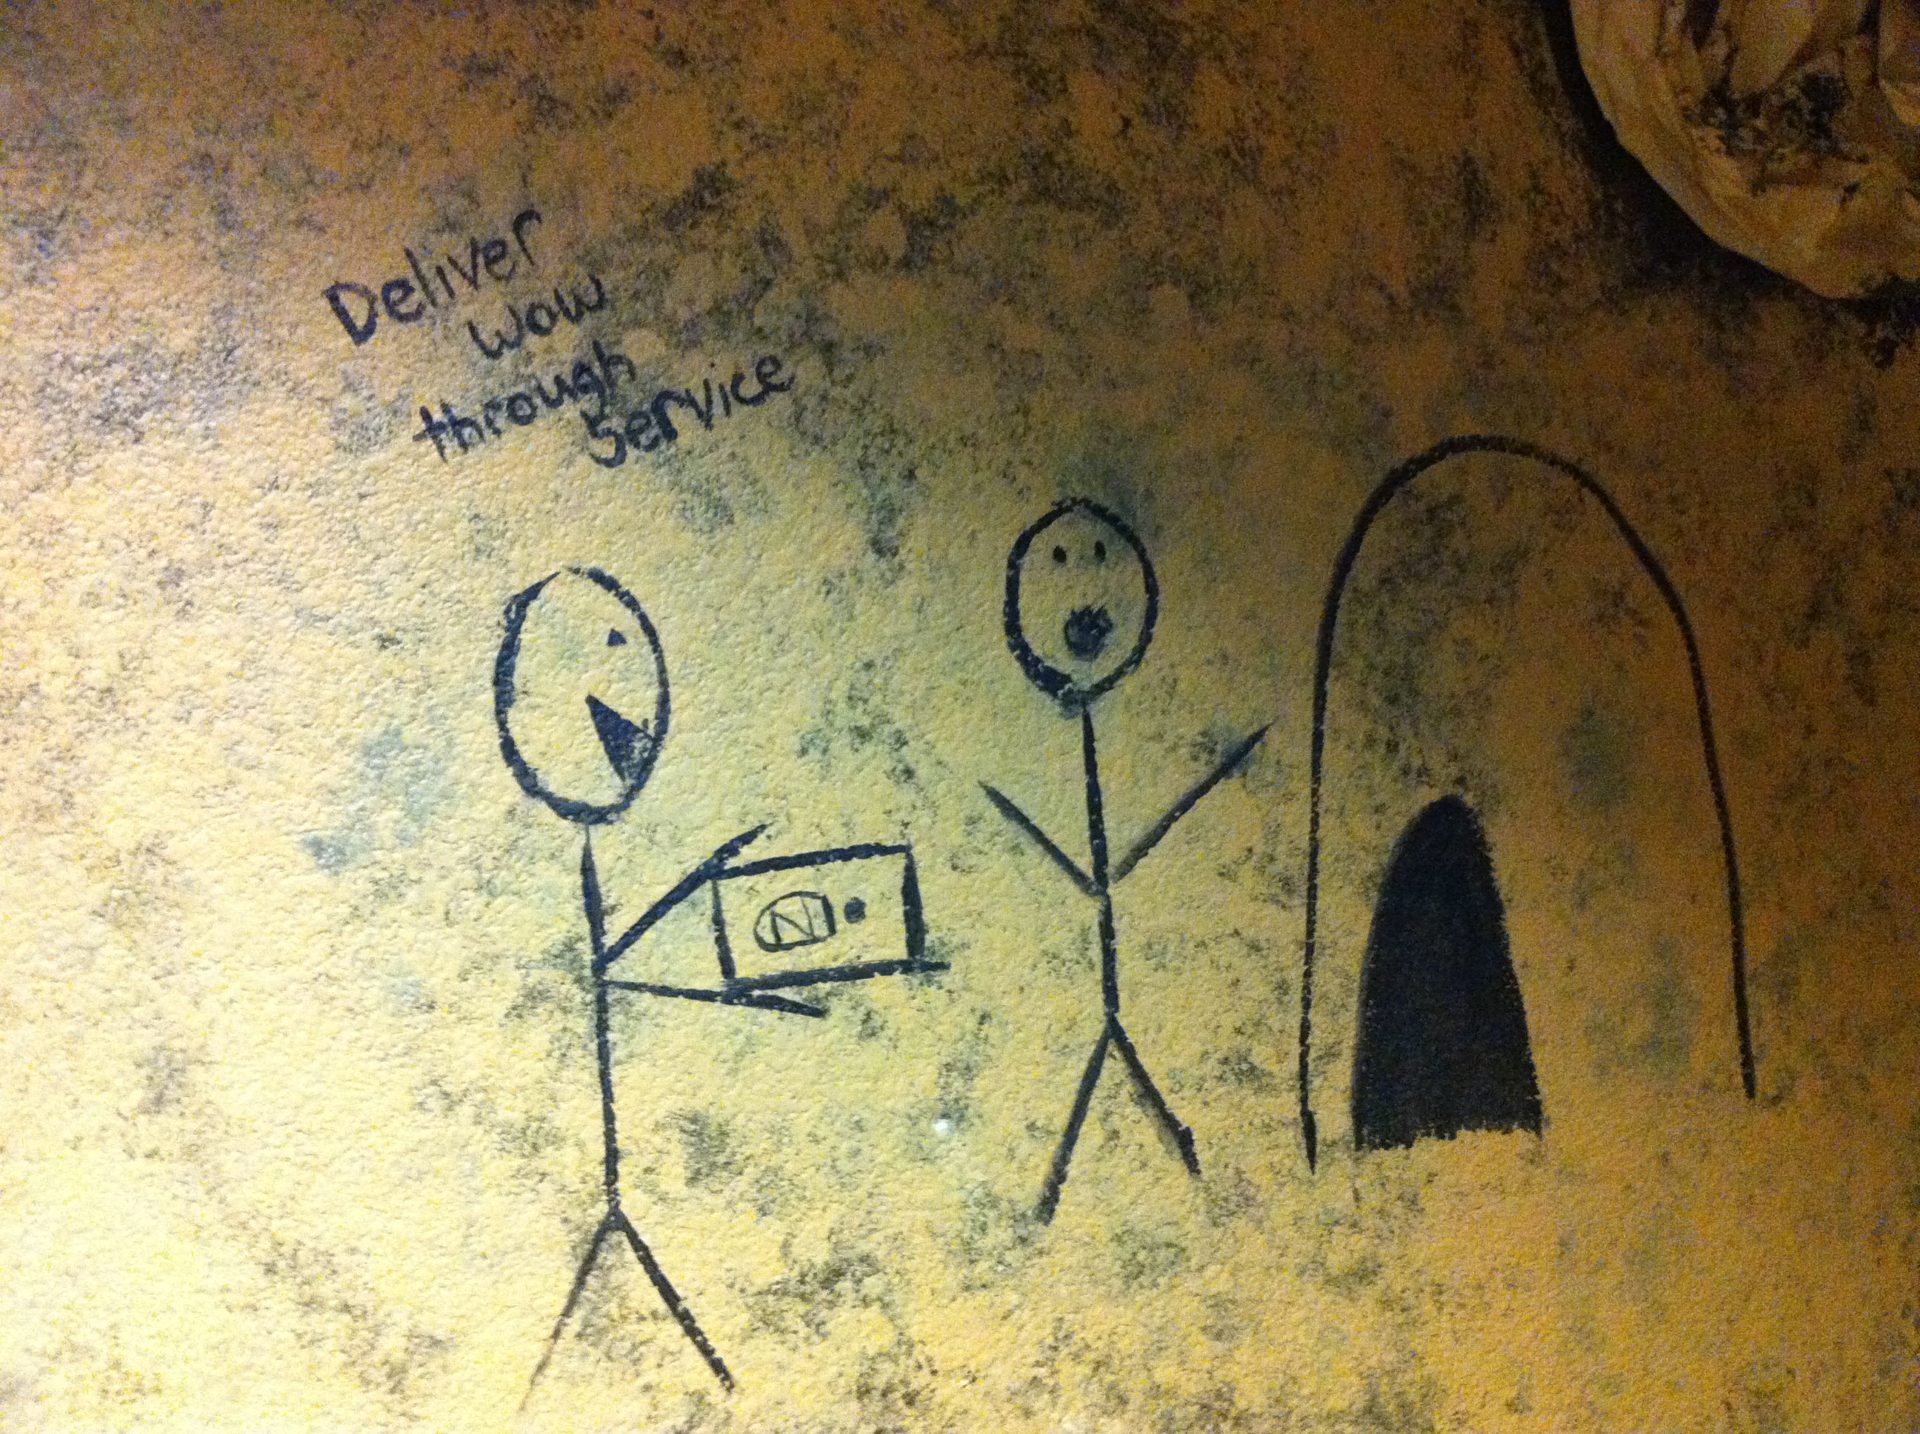 Deliver
wow
through
Service